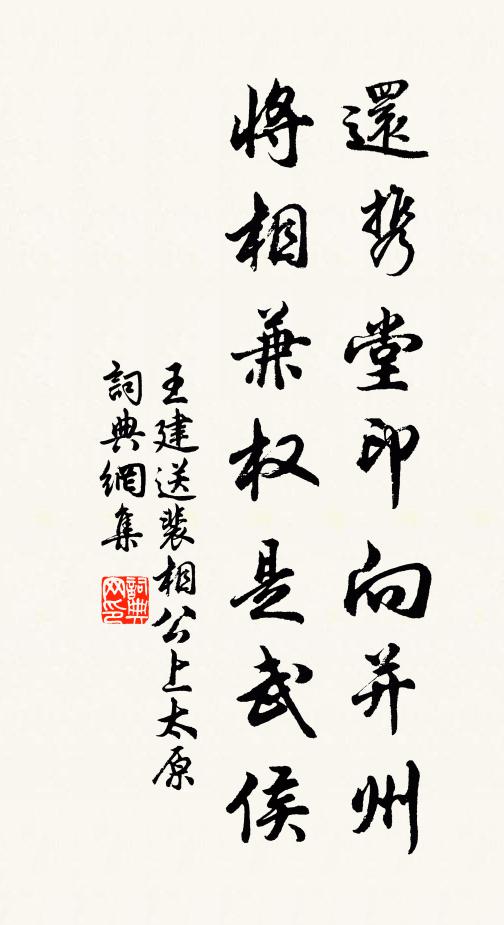 還携堂印向并州
將相兼权是武侯
王建送裴相公上太原
詞典網集
詞典网印